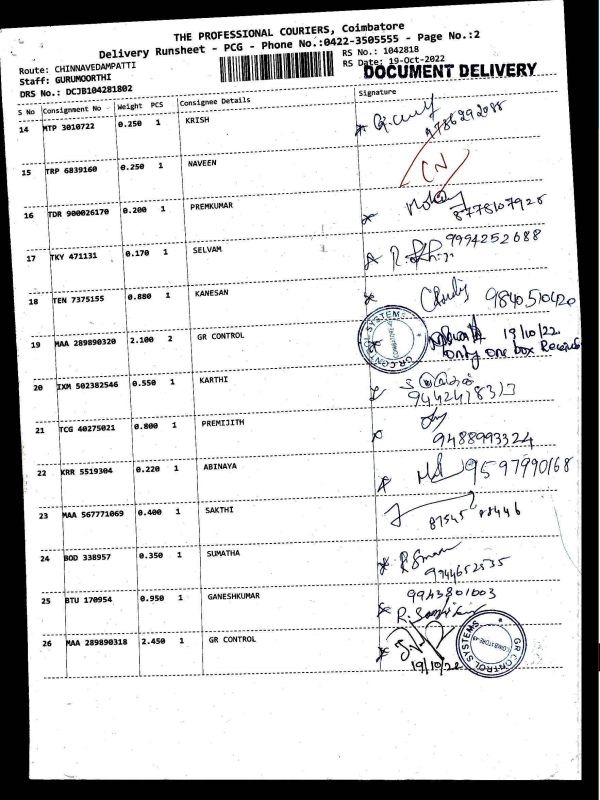 THE PROFESSIONAL COURIERS, Coimbatore
Delivery Runsheet - PCG - Phone No.:0422-3505555 - Page No.:2
Route: CHINNAVEDAMPATTI
RS No.: 1042818
Staff: GURUMOORTHI
RS Date: 19-Oct-2022
DRS No.: DCJB104281802
DOCUMENT DELIVERY
S No Consignment No Weight PCS Consignee Details Signature
14 MTP 3010722 0.250 1 KRISH
15 TRP 6839160 0.250 1 NAVEEN
CN
16 TDR 900026170 0.200 1 PREMKUMAR
8778107928
17 TKY 471131 0.170 1 SELVAM
9994252688
18 TEN 7375155 0.880 1 KANESAN
9840510420
19 MAA 289890320 2.100 2 GR CONTROL
19/10/22
only one box
GR CONTROL SYSTEMS
20 IXM 502382546 0.550 1 KARTHI
21 TCG 40275021 0.800 1 PREMIJITH
9488993324
22 KRR 5519304 0.220 1 ABINAYA
9597990168
23 MAA 567771069 0.400 1 SAKTHI
24 BOD 338957 0.350 1 SUMATHA
25 BTU 170954 0.950 1 GANESHKUMAR
9943801003
26 MAA 289890318 2.450 1 GR CONTROL
19/10/22
GR CONTROL SYSTEMS